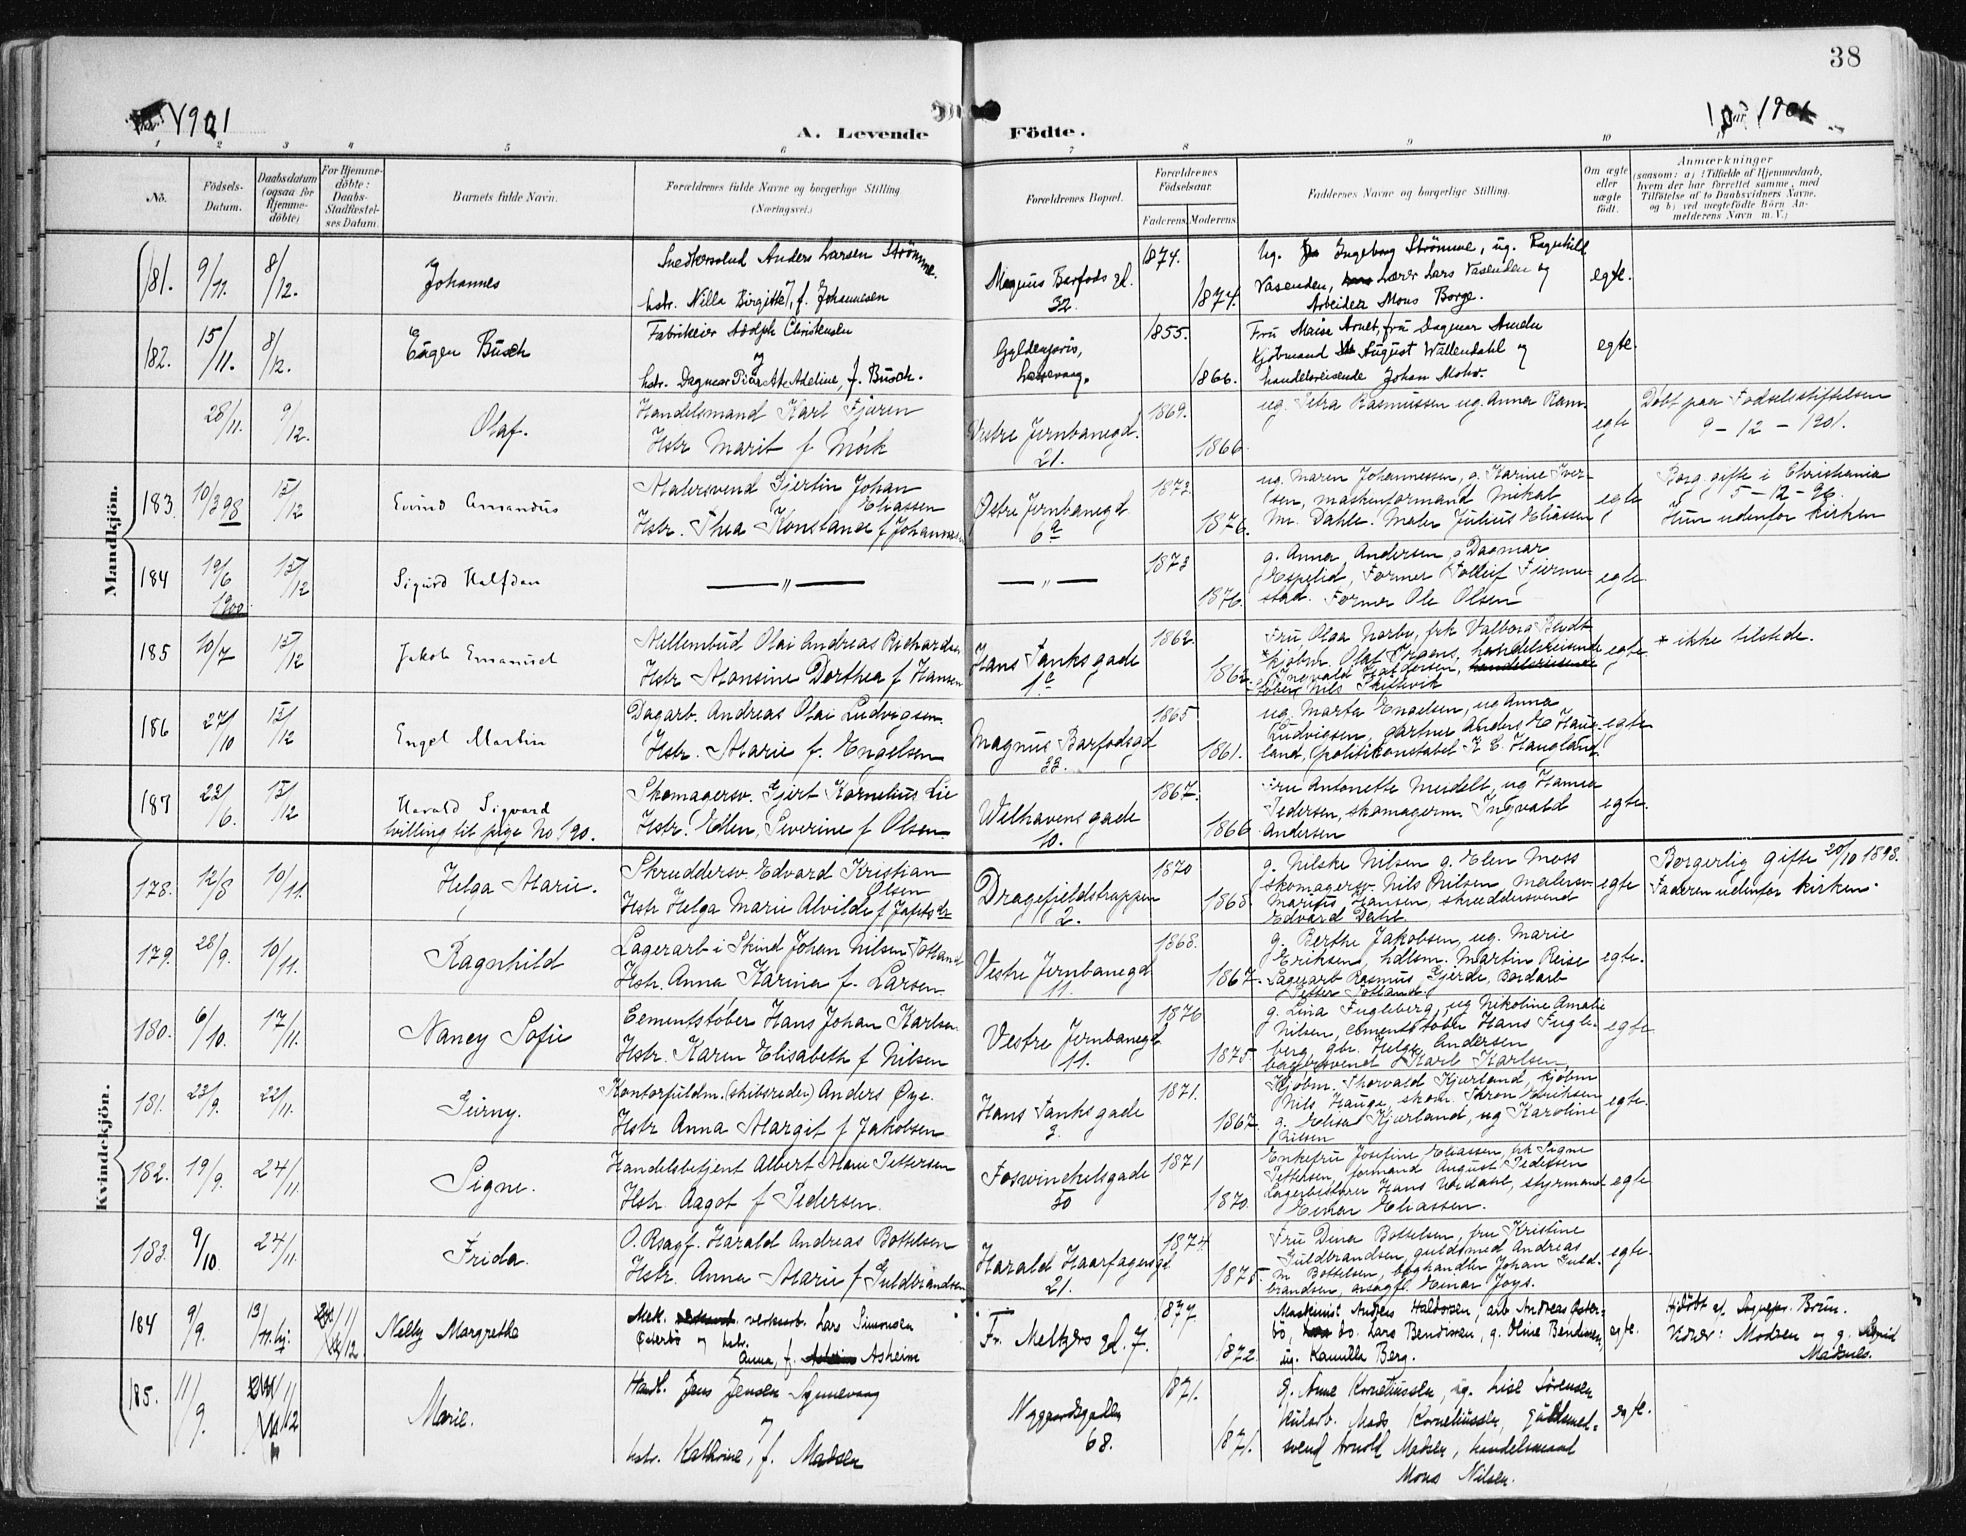 38
1901
A. Levende Födte.
1901
1 2 3 4 5 6 7 8 9 10
No.
Födsels-Datum.
Daabsdatum (ogsaa for Hjemme-döbte)
For Hjemme-döbte: Daabs-Stadfæstel-ses Datum.
Barnets fulde Navn.
Forældrenes fulde Navne og borgerlige Stilling (Næringsvei.)
Forældrenes Bopæl.
Forældrenes Födselsaar.
Faderens Moderens
Faddernes Navne og borgerlige Stilling.
Om ægte eller uægte födt.
Anmærkninger
(saasom: a) i Tilfælde af Hjemmedaab,
hvem der har forrettet samme, med
Tilföielse af to Daabsvidners Navne,
og b) ved uægtefödte Börn An-
melderens Navn m. V.)
Mandkjön.
181. 9/11. 8/12. Johannes
Snedkersvend Anders Larsen Strömme.
hstr. Nilla Birgitte, f. Johannesen
Magnus Barfods gd. 32.
1874. 1874.
Ug. Ingeborg Strömme, ug. Ragnhild
Vasenden, Lærer Lars Vasenden og
Arbeider Mons Borge.
egte.
182. 15/11. 8/12. Eugen Busch
Fabrikeier Adolph Christensen
hstr. Dagmar Adeline, f. Busch.
1855. 1866.
Fru Maria Arnet, fru Dagmar
Kjöbmand August Wallendahl og
handelsreisende Johan Mohr.
egte.
28/11. 9/12. Olaf.
Handelsmand Karl Fjæren
Hstr Marit f Mörk
Vestre Jernbanegd. 21.
1869. 1866.
ug. Petra Rasmussen ug. Anna Ram-
egte
Döbt paa Födselsstiftelsen
9 - 12 - 1901.
183. 10/3 98 15/12 Eivind Amandus
Malersvend Gjertin Johan Eliassen
Hstr. Thea Konstance f Johannesen
Vestre Jernbanegd 6a
1873. 1876.
ug. Maren Johannessen, g. Karine Iver-
sen, maskinformand Mikal
Mr. Dahle. Maler Julius Eliassen
egte
Borg. gifte i Christiania
5 - 12 - 96.
Hun udenfor kirken
184 19/6 1900 15/12 Sigurd Halfdan
— " — — " —
1873 1876.
g. Anna Andersen, g Dagmar
Espelid, Former Tolleif Fjerme-
stad. Former Ole Olsen
egte
185 10/7 15/12 Jakob Emanuel
Millembud Olai Andreas Richardsen
Hstr Monsine Dorthea f Hansen
Hans Tanks gade 1a
1862. 1862.
Fru Olga Narbv, frk Valborg Blydt
* kjöbm. Olaf Thaans, handelsreisende
Nils Skeltevik
egte
* ikke tilstede.
186 27/10 15/12 Engel Martin
Dagarb. Andreas Olai Ludvigsen.
Hstr. Marie f. Engelsen
Magnus Barfodsgd 33.
1865 1861.
ug. Marta Engelsen, ug Anna
Ludvigsen, gartner Anders E Haug-
land, politikonstabel K E. Haugland.
egte
187 23/6. 15/12 Harald Sigvard
tvilling til pige No 190.
Skomagersv. Gjert Kornelius Lie
Hstr. Edlen, Severine f Olsen
Welhavens gade 10.
1867. 1866
Fru Antonette Meidell, ug Hanna
Pedersen, skomagerm. Ingvald
Andersen
egte.
Kvindekjön.
178. 12/8 10/11. Helga Marie.
Skræddersv. Edvard Kristian Olsen
Hstr Helga Marie Alvilde f Jafetsdr
Dragefjeldstrappen 2.
1870 1868.
g. Nilske Nilsen g. Elen Moss
skomagersv. Nils Nilsen Malersv.
Marius Hansen, skræddersvend
Edvard Dahl
egte
Borgerlig gifte 20/10 1898.
Faderen udenfor kirken.
179. 28/9. 10/11. Ragnhild
Lagerarb i Skind Johan Nilsen Totland
Hstr. Anna Karina f. Larsen.
Vestre Jernbanegd 11.
1868. 1867.
g. Berthe Jakobsen, ug. Marie
Eriksen, hdlsm. Martin Reise
Lagerarb Rasmus Gjerde, Bordarb
Petter Totland.
egte.
180. 6/10. 17/11. Nancy Sofie
Cementstöber Hans Johan Karlsen.
Hstr. Karen Elisabeth f Nilsen
Vestre Jernbanegd. 11.
1876 1875.
g. Lina Fugleberg, ug Nikoline Amalie
Nilsen, cementstöber Hans Fugle-
berg, gbr. Helge Andersen
bagersvend Karl Karlsen
egte.
181. 23/9. 22/11. Gurny.
Kontorfuldm. (skibsreder) Anders Øye.
Hstr Anna Margit f Jakobsen.
Hans Tanks gade 3.
1871. 1867.
Kjöbm. Thorvald Kjærland, kjöbm
Nils Hauge, skom. Thron Eriksen
g. Elisa Kjærland, ug Karoline
Nilsen
egte.
182. 19/9. 24/11. Signe.
Handelsbetjent Albert Marie Pettersen
Hstr. Aagot f Pedersen.
Foswinckelsgade 50
1871 1870.
Enkefru Josefine Eliassen, frk Signe
Pettersen, formand August Pedersen
Lagerbestyrer Hans Uredahl, styrmand
Einar Eliassen.
egte
183. 9/10. 24/11. Frida.
O.Rsagf. Harald Andreas Bottelsen
Hstr. Anna Marie f Guldbrandsen
Harald Haarfagersgd. 21.
1874. 1875.
Fru Dina Bottelsen, fru Kristine
Guldbrandsen, guldsmed Andreas
M Bottelsen, boghandler Johan Guld-
brandsen, orsagf. Einar Joys.
egte.
184 9/9. 13/11. hj. 1/12 Nelly Margrethe
Mek. verksarb. Lars Simonsen
Osterbö og hstr.
Anna, f. Asheim
Fr. Meltzers gd. 7.
1877 1872.
Maskinist Anders Haldorsen, arb Andreas Oster-
bö, do. Lars Bendixen, g. Oline Bendixen,
ug. Kamilla Berg.
egte.
Hjdöbt af Sognepr. Brun.
Vidner: Madsen og g. Astrid
Madsnes.
185. 11/9. 1/12 Marie.
Handl. Jens Jensen Synnevaag
hstr. Kathrine, f. Madsen
Nygaardsgaden 68.
1871. 1871.
g. Anne Korneliussen, ug. Lise Sörensen
Kularb. Mads Korneliussen, Guldsmed-
svend Arnold Madsen, handelsmand
Mons Nilsen.
egte.